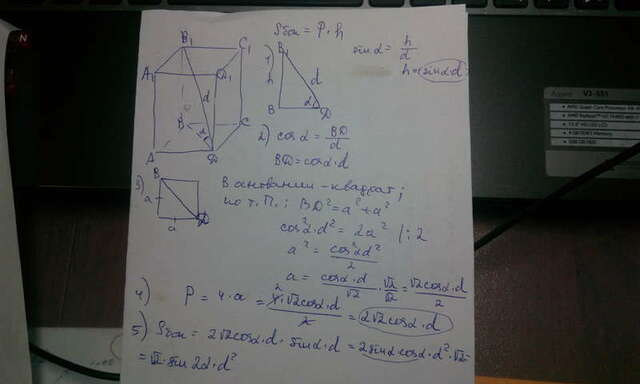 Sбок = P·h
B₁
C₁
A₁
D₁
d
B
α
C
A
D
1)
B₁
h
d
α
B
D
sin α = h/d
h = sin α·d
2) cos α = BD/d
BD = cos α·d
3)
B
a
a
D
В основании - квадрат;
по т.П.: BD² = a² + a²
cos²α·d² = 2a² /:2
a² = cos²αd²/2
a = cosα·d/√2 · √2/√2 = √2cosα·d/2
4) P = 4·a = 4·√2cosα·d/2 = 2√2cosα·d
2
5) Sбок = 2√2cosα·d · sinα·d = 2sinαcosα·d²·√2 =
= √2·sin2α·d²
Aspire V3-551